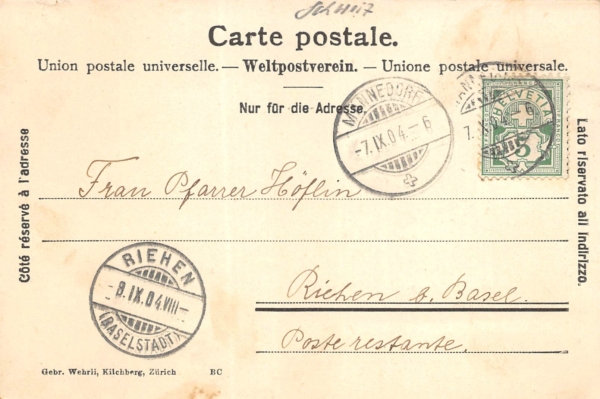 Schweiz
Carte postale.
Union postale universelle. — Weltpostverein. — Unione postale universale.
Nur für die Adresse.
Côté réservé à l'adresse
Lato riservato all indirizzo.
MÆNNEDORF
-7.IX.04.-6
HELVETIA
5
7.IX.04.-6
Frau Pfarrer Höflin
RIEHEN
8.IX.04.VIII-
(BASELSTADT)
Riehen b. Basel.
Poste restante.
Gebr. Wehrli, Kilchberg, Zürich BC